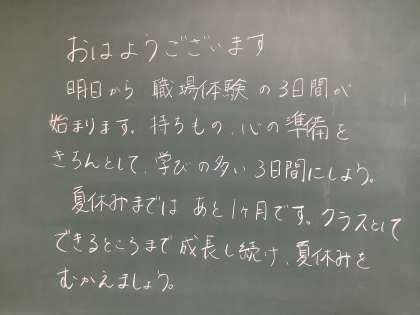 おはようございます
明日から 職場体験の3日間が
始まります。持ちもの、心の準備を
きちんとして、学びの多い3日間にしよう。
夏休みまでは あと1ヶ月です。クラスとして
できるところまで成長し続け、夏休みを
むかえましょう。